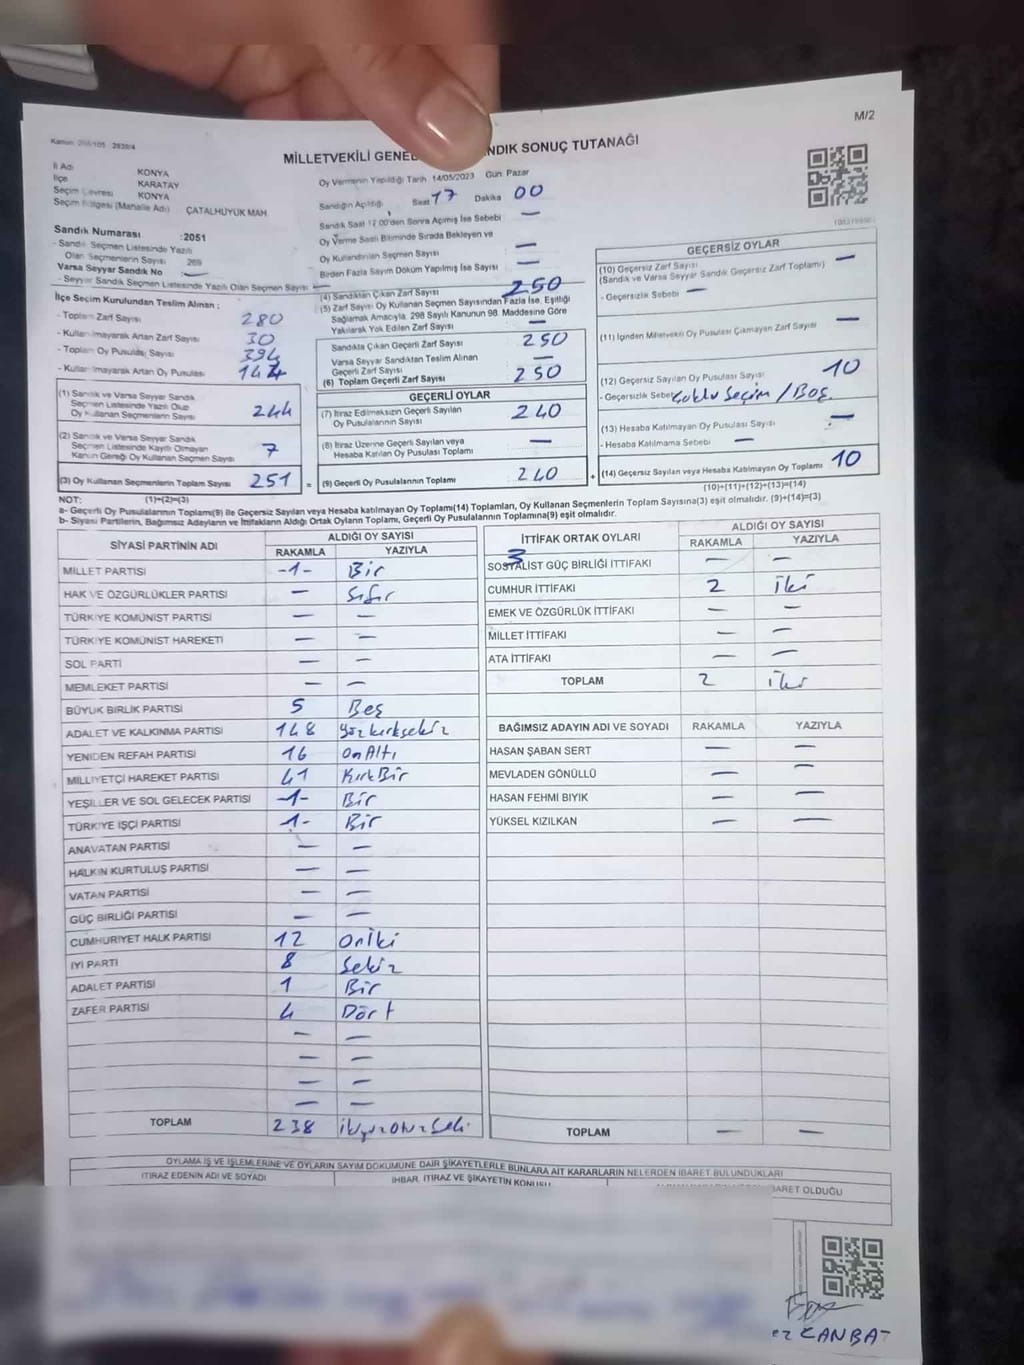 M/2
MİLLETVEKİLİ GENEL NDIK SONUÇ TUTANAĞI
İl Adı KONYA
İlçe KARATAY
Seçim Çevresi KONYA
Seçim Bölgesi (Mahalle Adı) ÇATALHÜYÜK MAH
Oy Vermenin Yapıldığı Tarih 14/05/2023 Gün Pazar
Sandığın Açıldığı Saat 17 Dakika 00
Sandık Saat 17.00'den Sonra Açılmış İse Sebebi —
Oy Verme Saati Bitiminde Sırada Bekleyen ve
Oy Kullandırılan Seçmen Sayısı —
Birden Fazla Sayım Döküm Yapılmış İse Sayısı —
Sandık Numarası :2051
- Sandık Seçmen Listesinde Yazılı
Olan Seçmenlerin Sayısı 269
Varsa Seyyar Sandık No —
- Seyyar Sandık Seçmen Listesinde Yazılı Olan Seçmen Sayısı —
İlçe Seçim Kurulundan Teslim Alınan ;
- Toplam Zarf Sayısı 280
- Kullanılmayarak Artan Zarf Sayısı 30
- Toplam Oy Pusulası Sayısı 394
- Kullanılmayarak Artan Oy Pusulası 144
(1) Sandık ve Varsa Seyyar Sandık
Seçmen Listesinde Yazılı Olup
Oy Kullanan Seçmenlerin Sayısı 244
(2) Sandık ve Varsa Seyyar Sandık
Seçmen Listesinde Kayıtlı Olmayan
Kanun Gereği Oy Kullanan Seçmen Sayısı 7
(3) Oy Kullanan Seçmenlerin Toplam Sayısı 251 =
(4) Sandıktan Çıkan Zarf Sayısı 250
(5) Zarf Sayısı Oy Kullanan Seçmen Sayısından Fazla İse, Eşitliği
Sağlamak Amacıyla, 298 Sayılı Kanunun 98. Maddesine Göre
Yakılarak Yok Edilen Zarf Sayısı —
Sandıkta Çıkan Geçerli Zarf Sayısı 250
Varsa Seyyar Sandıktan Teslim Alınan
Geçerli Zarf Sayısı —
(6) Toplam Geçerli Zarf Sayısı 250
GEÇERLİ OYLAR
(7) İtiraz Edilmeksizin Geçerli Sayılan
Oy Pusulalarının Sayısı 240
(8) İtiraz Üzerine Geçerli Sayılan veya
Hesaba Katılan Oy Pusulası Toplamı —
(9) Geçerli Oy Pusulalarının Toplamı 240 +
GEÇERSİZ OYLAR
(10) Geçersiz Zarf Sayısı
(Sandık ve Varsa Seyyar Sandık Geçersiz Zarf Toplamı) —
- Geçersizlik Sebebi —
(11) İçinden Milletvekili Oy Pusulası Çıkmayan Zarf Sayısı —
(12) Geçersiz Sayılan Oy Pusulası Sayısı 10
- Geçersizlik Sebebi Çoklu Seçim / Boş
(13) Hesaba Katılmayan Oy Pusulası Sayısı —
- Hesaba Katılmama Sebebi —
(14) Geçersiz Sayılan veya Hesaba Katılmayan Oy Toplamı 10
NOT: (1)+(2)=(3) (10)+(11)+(12)+(13)=(14)
a- Geçerli Oy Pusulalarının Toplamı(9) ile Geçersiz Sayılan veya Hesaba katılmayan Oy Toplamı(14) Toplamları, Oy Kullanan Seçmenlerin Toplam Sayısına(3) eşit olmalıdır. (9)+(14)=(3)
b- Siyasi Partilerin, Bağımsız Adayların ve İttifakların Aldığı Ortak Oyların Toplamı, Geçerli Oy Pusulalarının Toplamına(9) eşit olmalıdır.
SİYASİ PARTİNİN ADI ALDIĞI OY SAYISI
RAKAMLA YAZIYLA
MİLLET PARTİSİ -1- Bir
HAK VE ÖZGÜRLÜKLER PARTİSİ — Sıfır
TÜRKİYE KOMÜNİST PARTİSİ — —
TÜRKİYE KOMÜNİST HAREKETİ — —
SOL PARTİ — —
MEMLEKET PARTİSİ — —
BÜYÜK BİRLİK PARTİSİ 5 Beş
ADALET VE KALKINMA PARTİSİ 148 Yözkırksekiz
YENİDEN REFAH PARTİSİ 16 On Altı
MİLLİYETÇİ HAREKET PARTİSİ 41 Kırk Bir
YEŞİLLER VE SOL GELECEK PARTİSİ -1- Bir
TÜRKİYE İŞÇİ PARTİSİ -1- Bir
ANAVATAN PARTİSİ — —
HALKIN KURTULUŞ PARTİSİ — —
VATAN PARTİSİ — —
GÜÇ BİRLİĞİ PARTİSİ — —
CUMHURİYET HALK PARTİSİ 12 Oniki
İYİ PARTİ 8 Sekiz
ADALET PARTİSİ 1 Bir
ZAFER PARTİSİ 4 Dört
— —
— —
— —
— —
TOPLAM 238
İTTİFAK ORTAK OYLARI ALDIĞI OY SAYISI
RAKAMLA YAZIYLA
3
SOSYALİST GÜÇ BİRLİĞİ İTTİFAKI — —
CUMHUR İTTİFAKI 2 İki
EMEK VE ÖZGÜRLÜK İTTİFAKI — —
MİLLET İTTİFAKI — —
ATA İTTİFAKI — —
TOPLAM 2 İki
BAĞIMSIZ ADAYIN ADI VE SOYADI RAKAMLA YAZIYLA
HASAN ŞABAN SERT — —
MEVLADEN GÖNÜLLÜ — —
HASAN FEHMİ BIYIK — —
YÜKSEL KIZILKAN — —
TOPLAM — —
OYLAMA İŞ VE İŞLEMLERİNE VE OYLARIN SAYIM DÖKÜMÜNE DAİR ŞİKAYETLERLE BUNLARA AİT KARARLARIN NELERDEN İBARET BULUNDUKLARI
İTİRAZ EDENİN ADI VE SOYADI İHBAR, İTİRAZ VE ŞİKAYETİN KONUSU BARET OLDUĞU
CANBAT